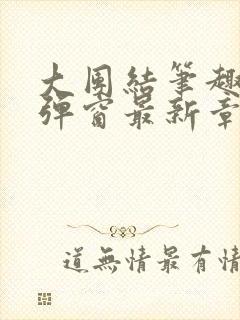 大團結筆趣
彈窗最新章
道無情最有情